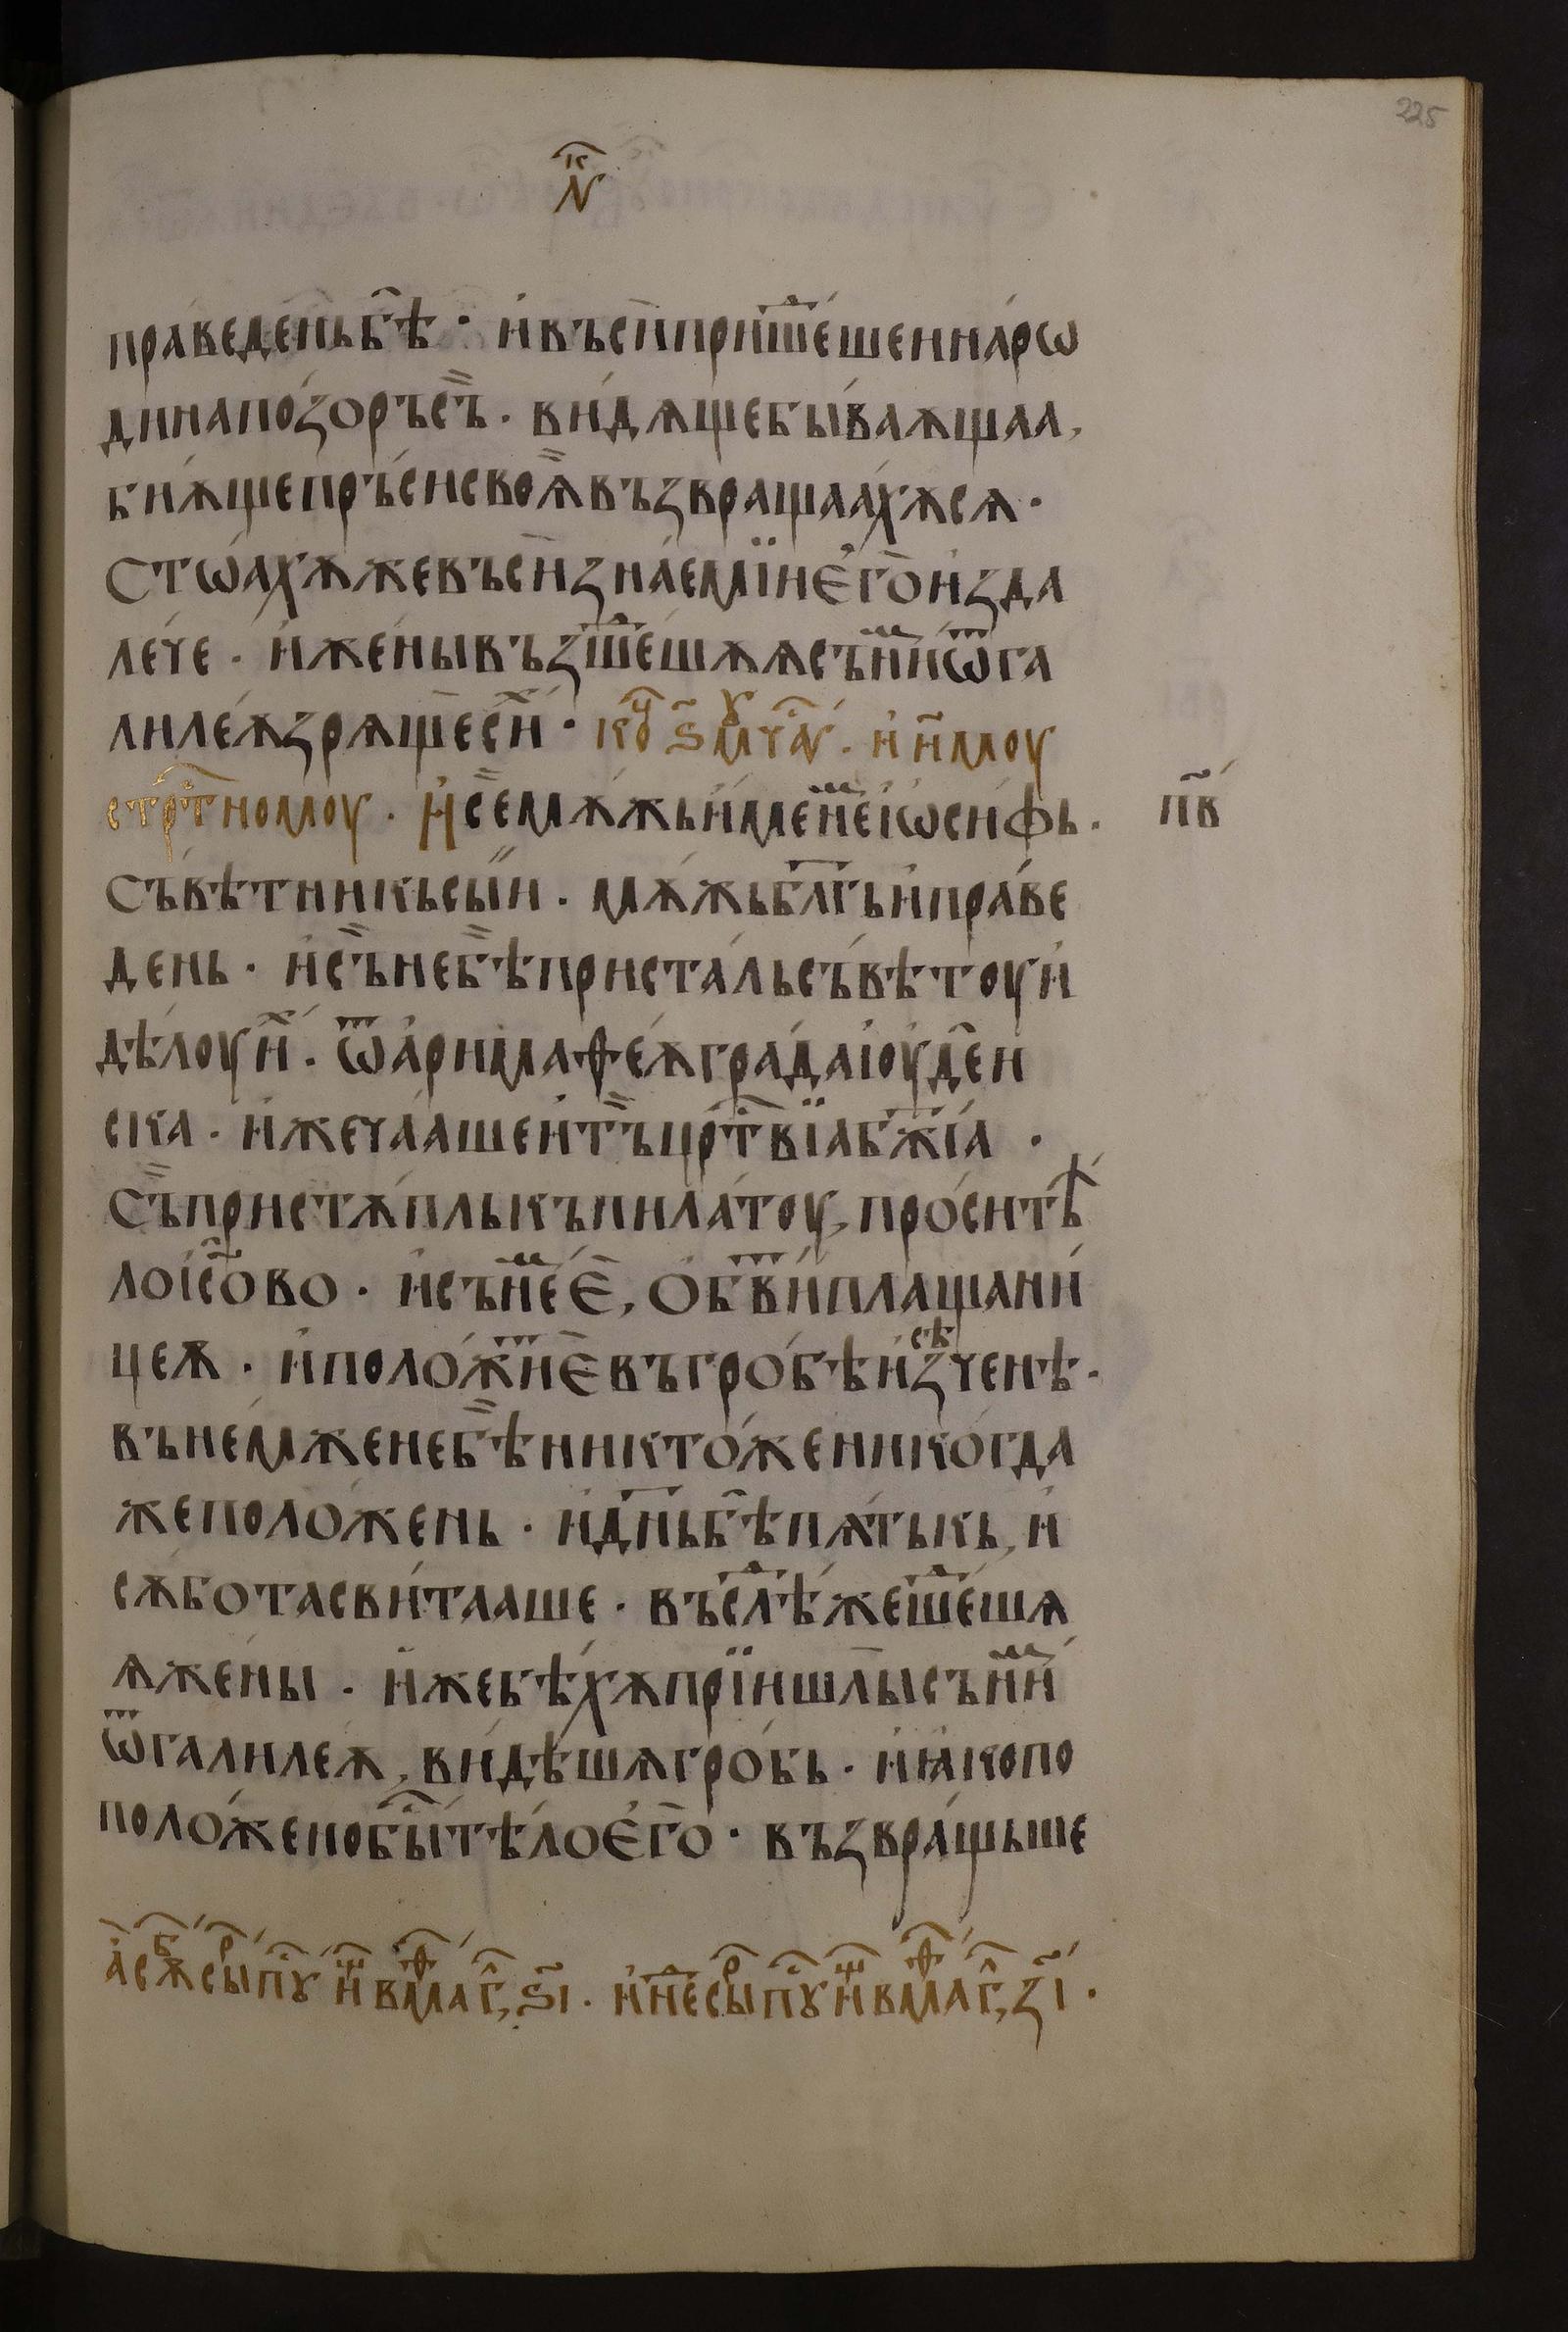 225
лꙋⷦ҇
пра́веде́нь бѣ̑ · и҆ въси̑ прише́⁣ⷣшеи на́рѡ
ди на по́зорь съ̏ · ви́дѧще быва́ѫщаа,
биѫ́ще пръ́си своѫ̏ възвращаа́хѫ сѧ ·
Стѡ́ахѫ же въси̑ зна́емїи є҆го̀ и҆зда
лече · и҆ жены̀ възше́ⷣшѫѧ съ ни́ⷨ ѿ га
лиле́ѫ зрѧще си́ⷯ · коⷰ҇ ѕ҃ моу́ⷱ҇ⷩ. и҆ н҃моу
стрⷭ҇тномоу · И҆ се̏ мѫ́жь и҆́мене́ⷨ і҆ѡ́сифь ·
п҃в
Съвѣ́тникь сы̏и · мѫ́жь бл҃гь и҆ пра́ве
день · и҆ съ̏ не бѣ̏ приста́ль съвѣ́тоу и҆
дѣ́лоу и҆́ⷯ · ѿ а҆римаѳе́ѫ гра́да і҆оуде́и
ска · и҆же ча́аше и҆ тъ̏ црⷭ҇твїа бж҃їа ·
Съ̏ присту́пль къ пила́тоу, про́си тѣ́
ло і҆со҃во · и҆ съне́ⷨ є҆̀, ѻ҆бви́ⷮ плащани́
цеѫ · и҆ поло́жиⷮ є҆̀ въ гро́бѣ и҆зсѣⷱченѣ ·
въ не́мже не бѣ̏ никто́же николи́гда
же поло́жень · и҆ дн҃ь бѣ̑ пѧ́тькь, и҆
сѫ́бота сви́тааше · въслѣ́ⷣ же ше́ⷣшѧ
ѧ жены̀ · и҆́же бѣ́хѫ прїишлы̀ съ ни́ⷨ
ѿ галиле́ѫ, ви́дѣшѧ гро́бь · и҆ ꙗ҆́ко по
поло́жено бы́ⷭ҇ тѣ́ло є҆го̀ · възвра́щьше
а҆ сѫⷠ҇ сыⷬ҇ пⷭ҇у и҆щⷨ҇ в маⷴ҇ г҃, ѕ҃і · и҆ неⷣ҇ сыⷬ҇ пⷭ҇у и҆щⷨ҇ в маⷴ҇ г҃, з҃і ·